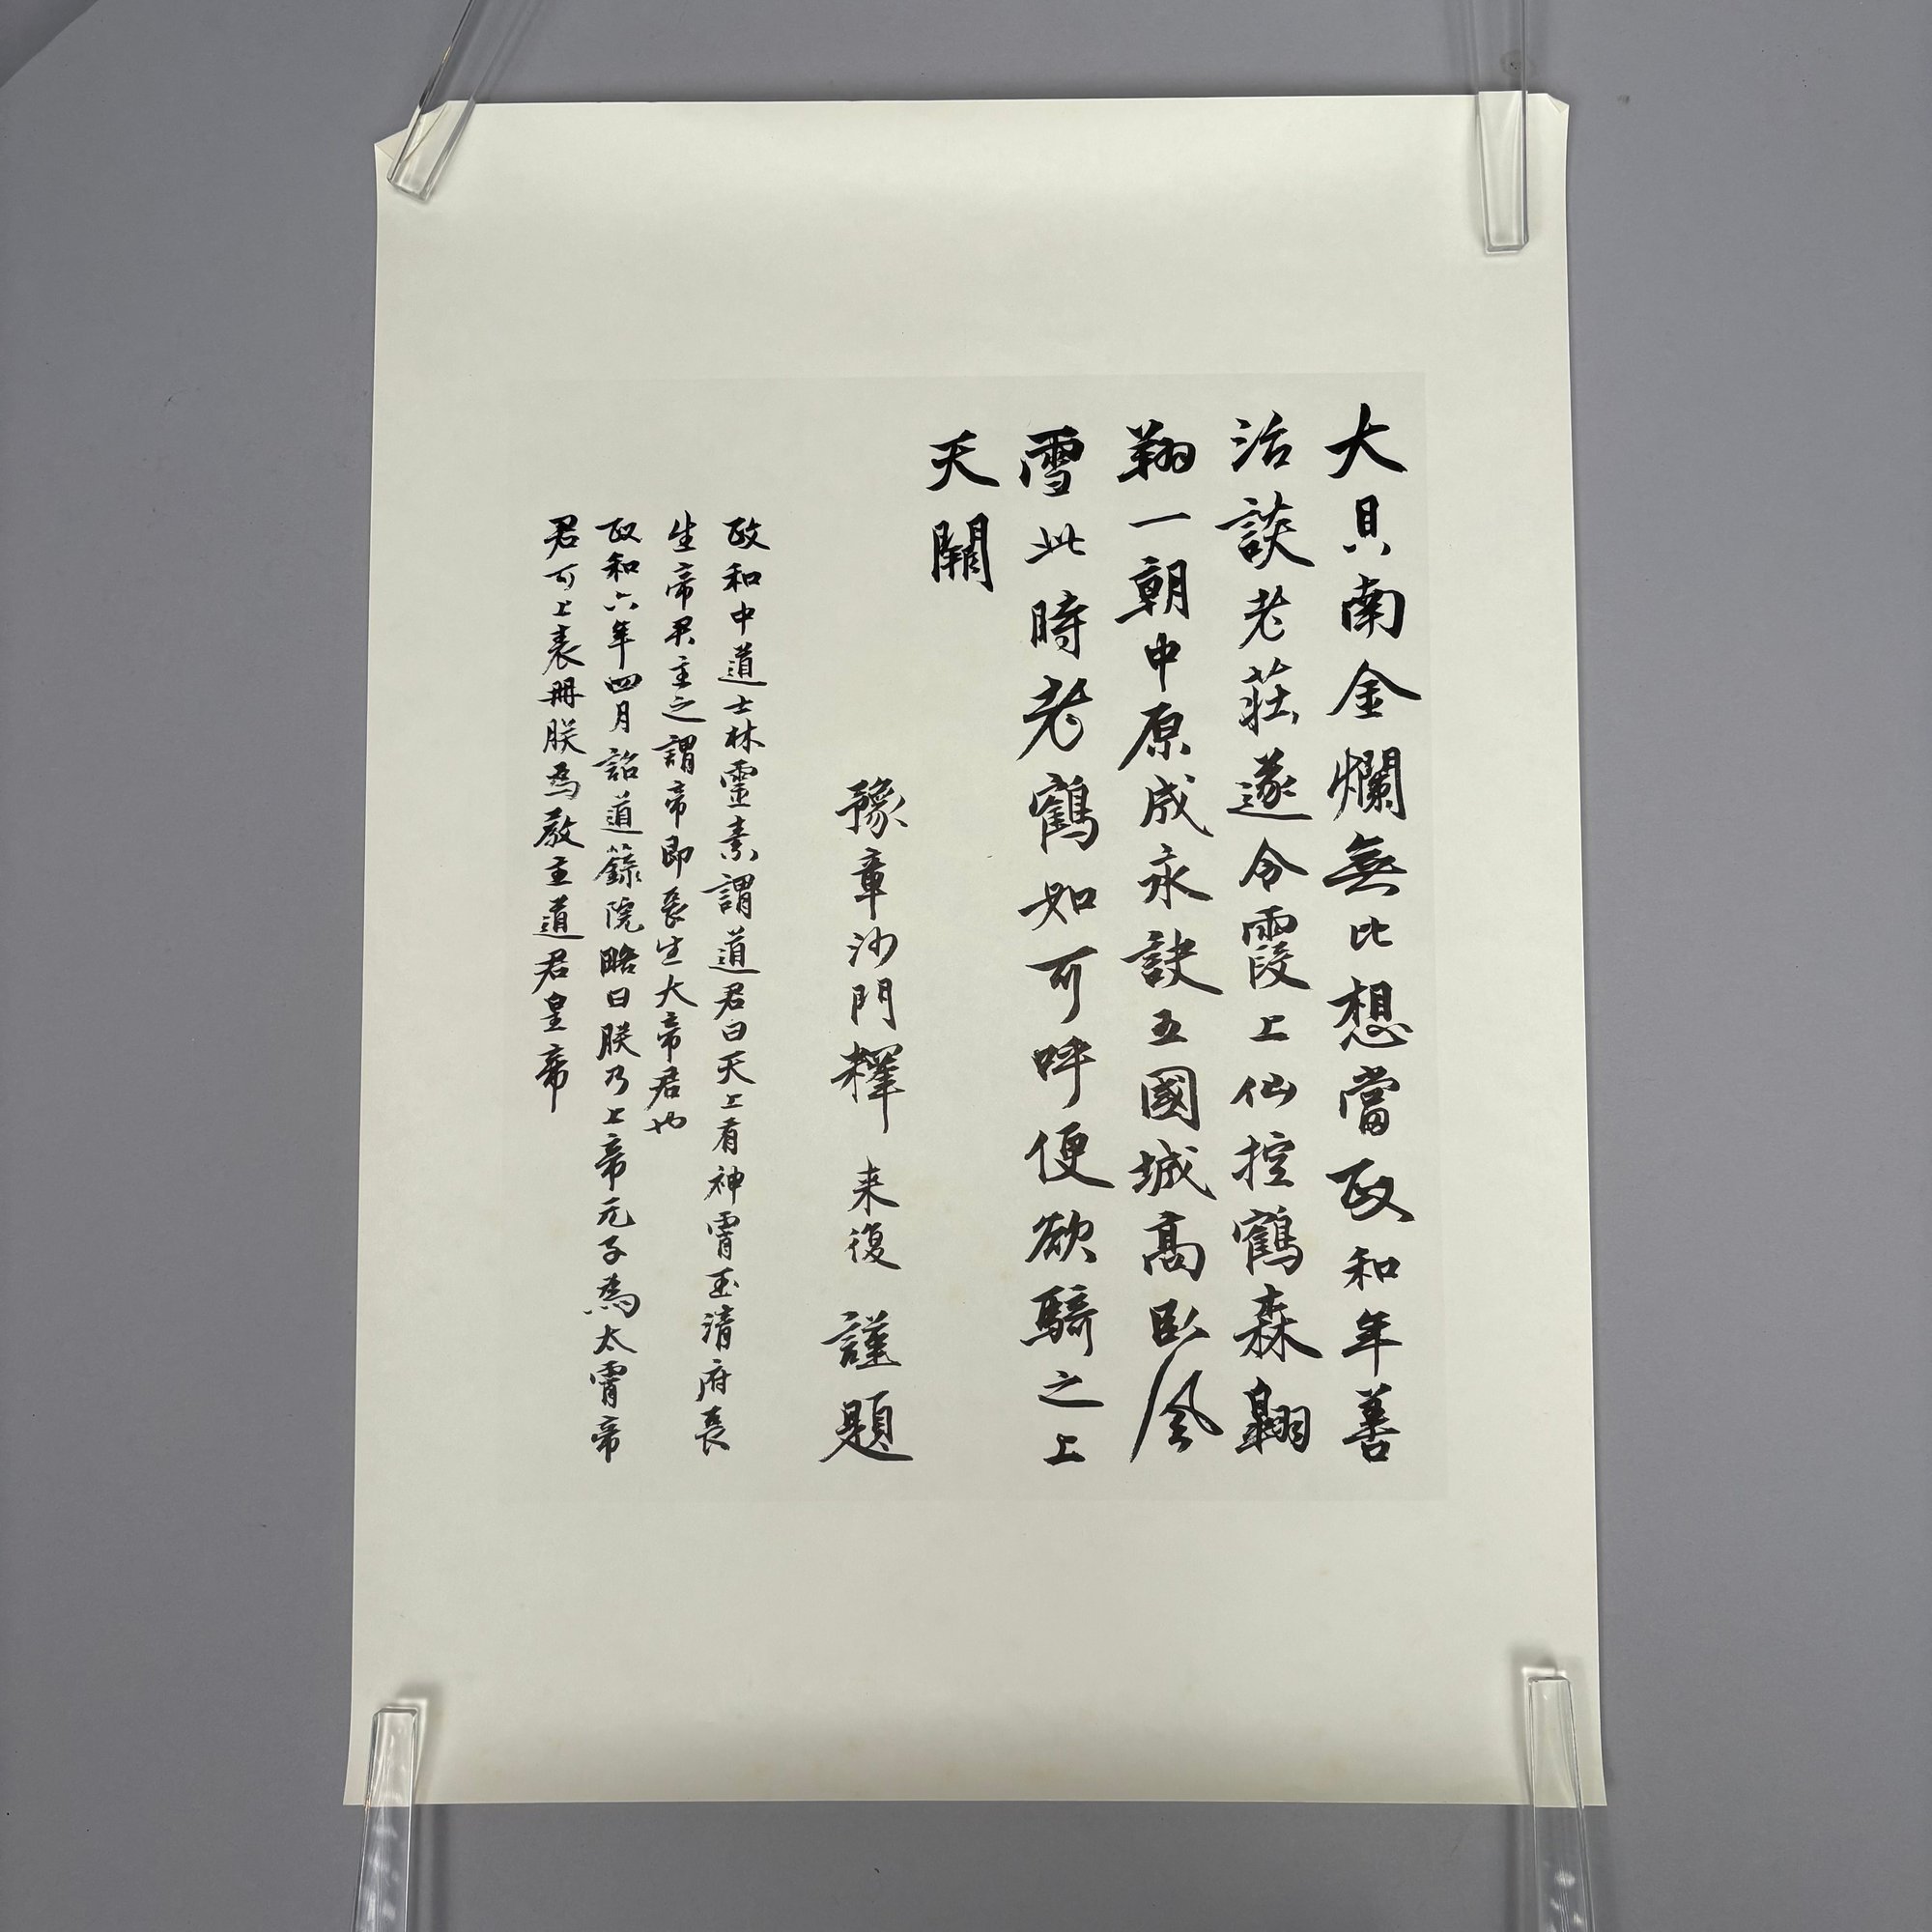 大貝南金爛無比想當政和年善
治談老莊遂令霞上仙控鶴森翱
翔一朝中原成永訣五國城高臥風
雪此時老鶴如可呼便欲騎之上
天關
豫章沙門釋 来復 謹題
政和中道士林靈素謂道君曰天上有神霄玉清府長
生帝君主之謂帝即長生大帝君也
政和六年四月詔道籙院略曰朕乃上帝元子為太霄帝
君可上表冊朕為教主道君皇帝